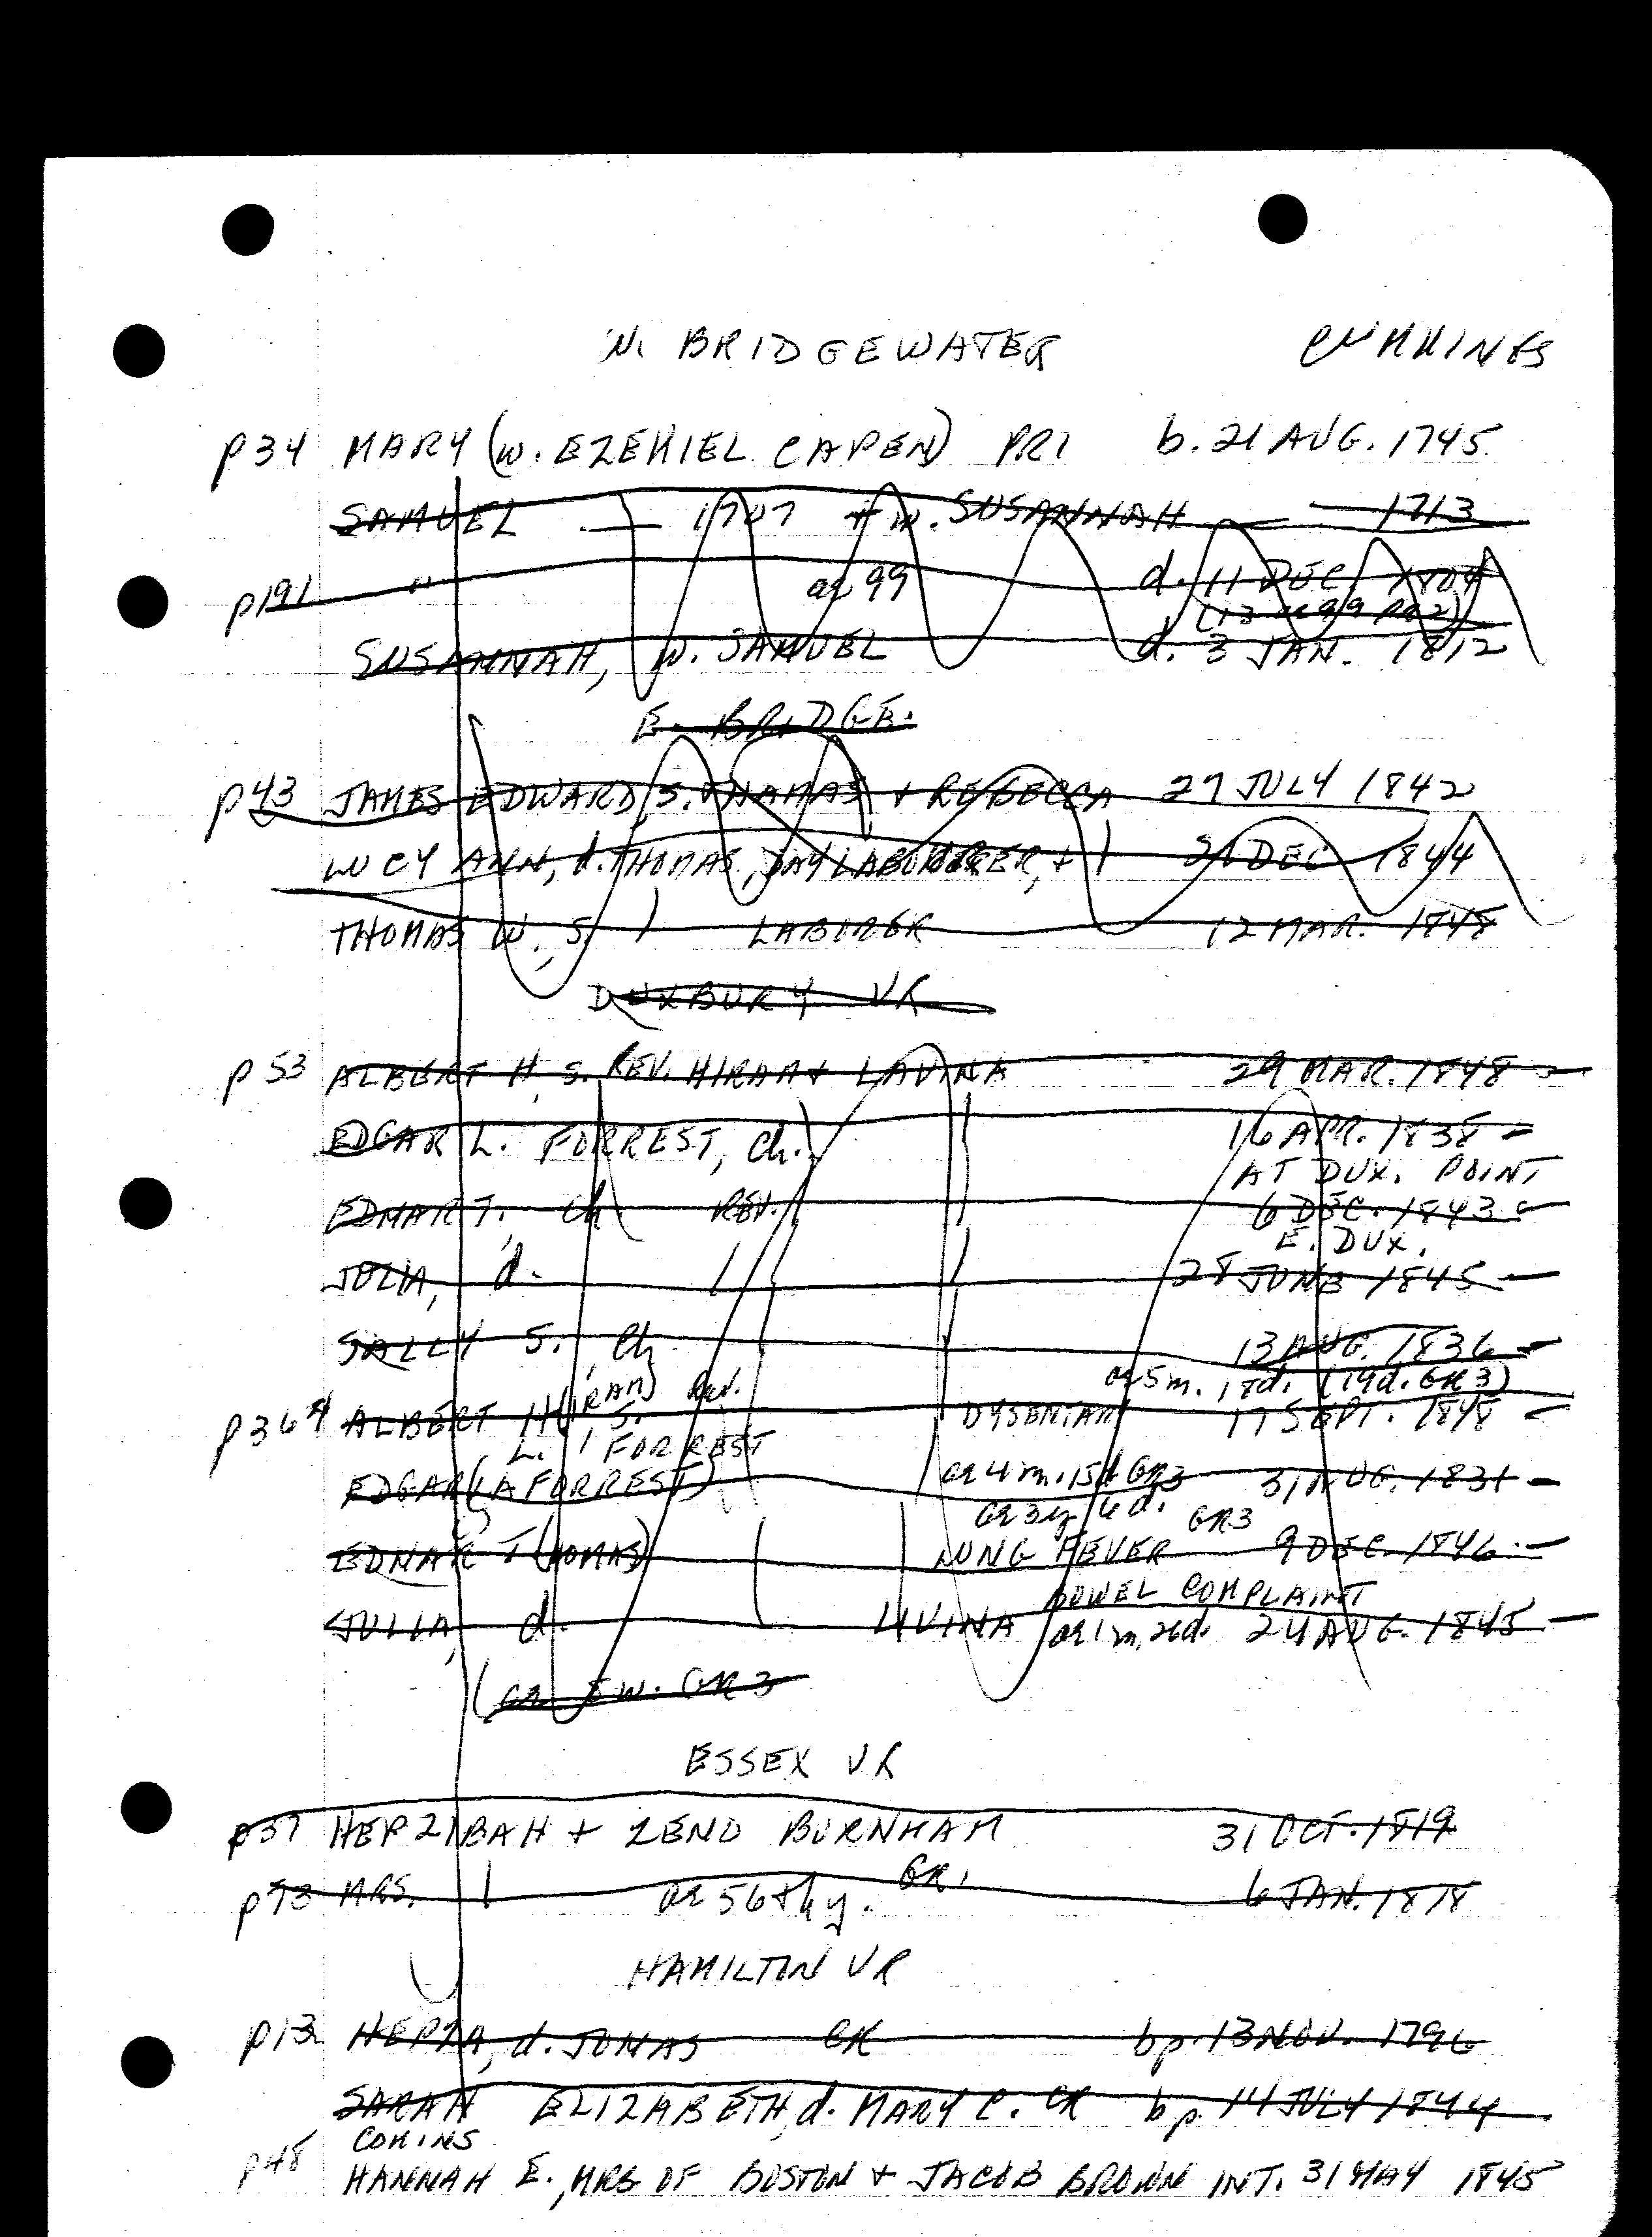 N. BRIDGEWATER CUMMINGS
p34 MARY (w. EZEKIEL CAPEN) PR1 b. 21 AUG. 1745
SAMUEL — 1707 + w. SUSANNAH — 1713
p191 " ae 99 d. 11 DEC 1804
(13 ae 99 PR2)
SUSANNAH, w. SAMUEL d. 3 JAN. 1812
E. BRIDGE.
p43 JAMES EDWARD, S. THOMAS + REBECCA 27 JULY 1842
LUCY ANN, d. THOMAS, DAY LABORER, + 1 DEC 1844
THOMAS W., S. LABORER 12 MAR. 1848
DUXBURY VR
p 53 ALBERT H, S. REV. HIRAM + LAVINA 29 MAR. 1848 —
EDGAR L. FORREST, ch. 16 APR. 1838 —
AT DUX. POINT
EDMAR T., ch REV. 6 DEC. 1843
E. DUX.
JULIA, d. 28 JUNE 1845 —
SALLY S. ch 13 AUG. 1836 —
ae 5 m. 18d. (19d. GR3)
p364 ALBERT H(IRAM) S. Rev. DYSENTARY 17 SEPT. 1848 —
L. FORREST
EDGAR (LA FORREST) ae 4 m. 15d GR3 31 AUG. —
ae 3y 6 d. GR3
EDNAR T(HOMAS) LUNG FEVER 9 DEC. 1846 —
BOWEL COMPLAINT
JULIA, d. LIVINA ae 1 m. 26d. 24 AUG. 1845 —
(ae 8 w. GR3
ESSEX VR
p37 HEPZIBAH + ZENO BURNHAM 31 OCT. 1819
p73 MRS. ae 56th y. GR1 6 JAN. 18
HAMILTON VR
p13 HEPZA, d. JONAS CR bp. 13 NOV. 1796
SARAH ELIZABETH, d. MARY C. CR bp. 14 JULY 1844
COMINS
p48 HANNAH E., MRS OF BOSTON + JACOB BROWN INT. 31 MAY 1845